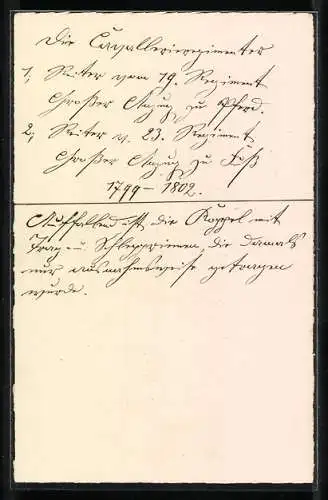 Die Cavallerieregimenter
1, Reiter vom 19. Regiment
Großer Anzug zu Pferd.
2, Reiter v. 23. Regiment
Großer Anzug zu Fuß
1799–1802.
Auffallend ist die Koppel mit
Trag- u. Schleppriemen, die damals
nur ausnahmsweise getragen
wurde.